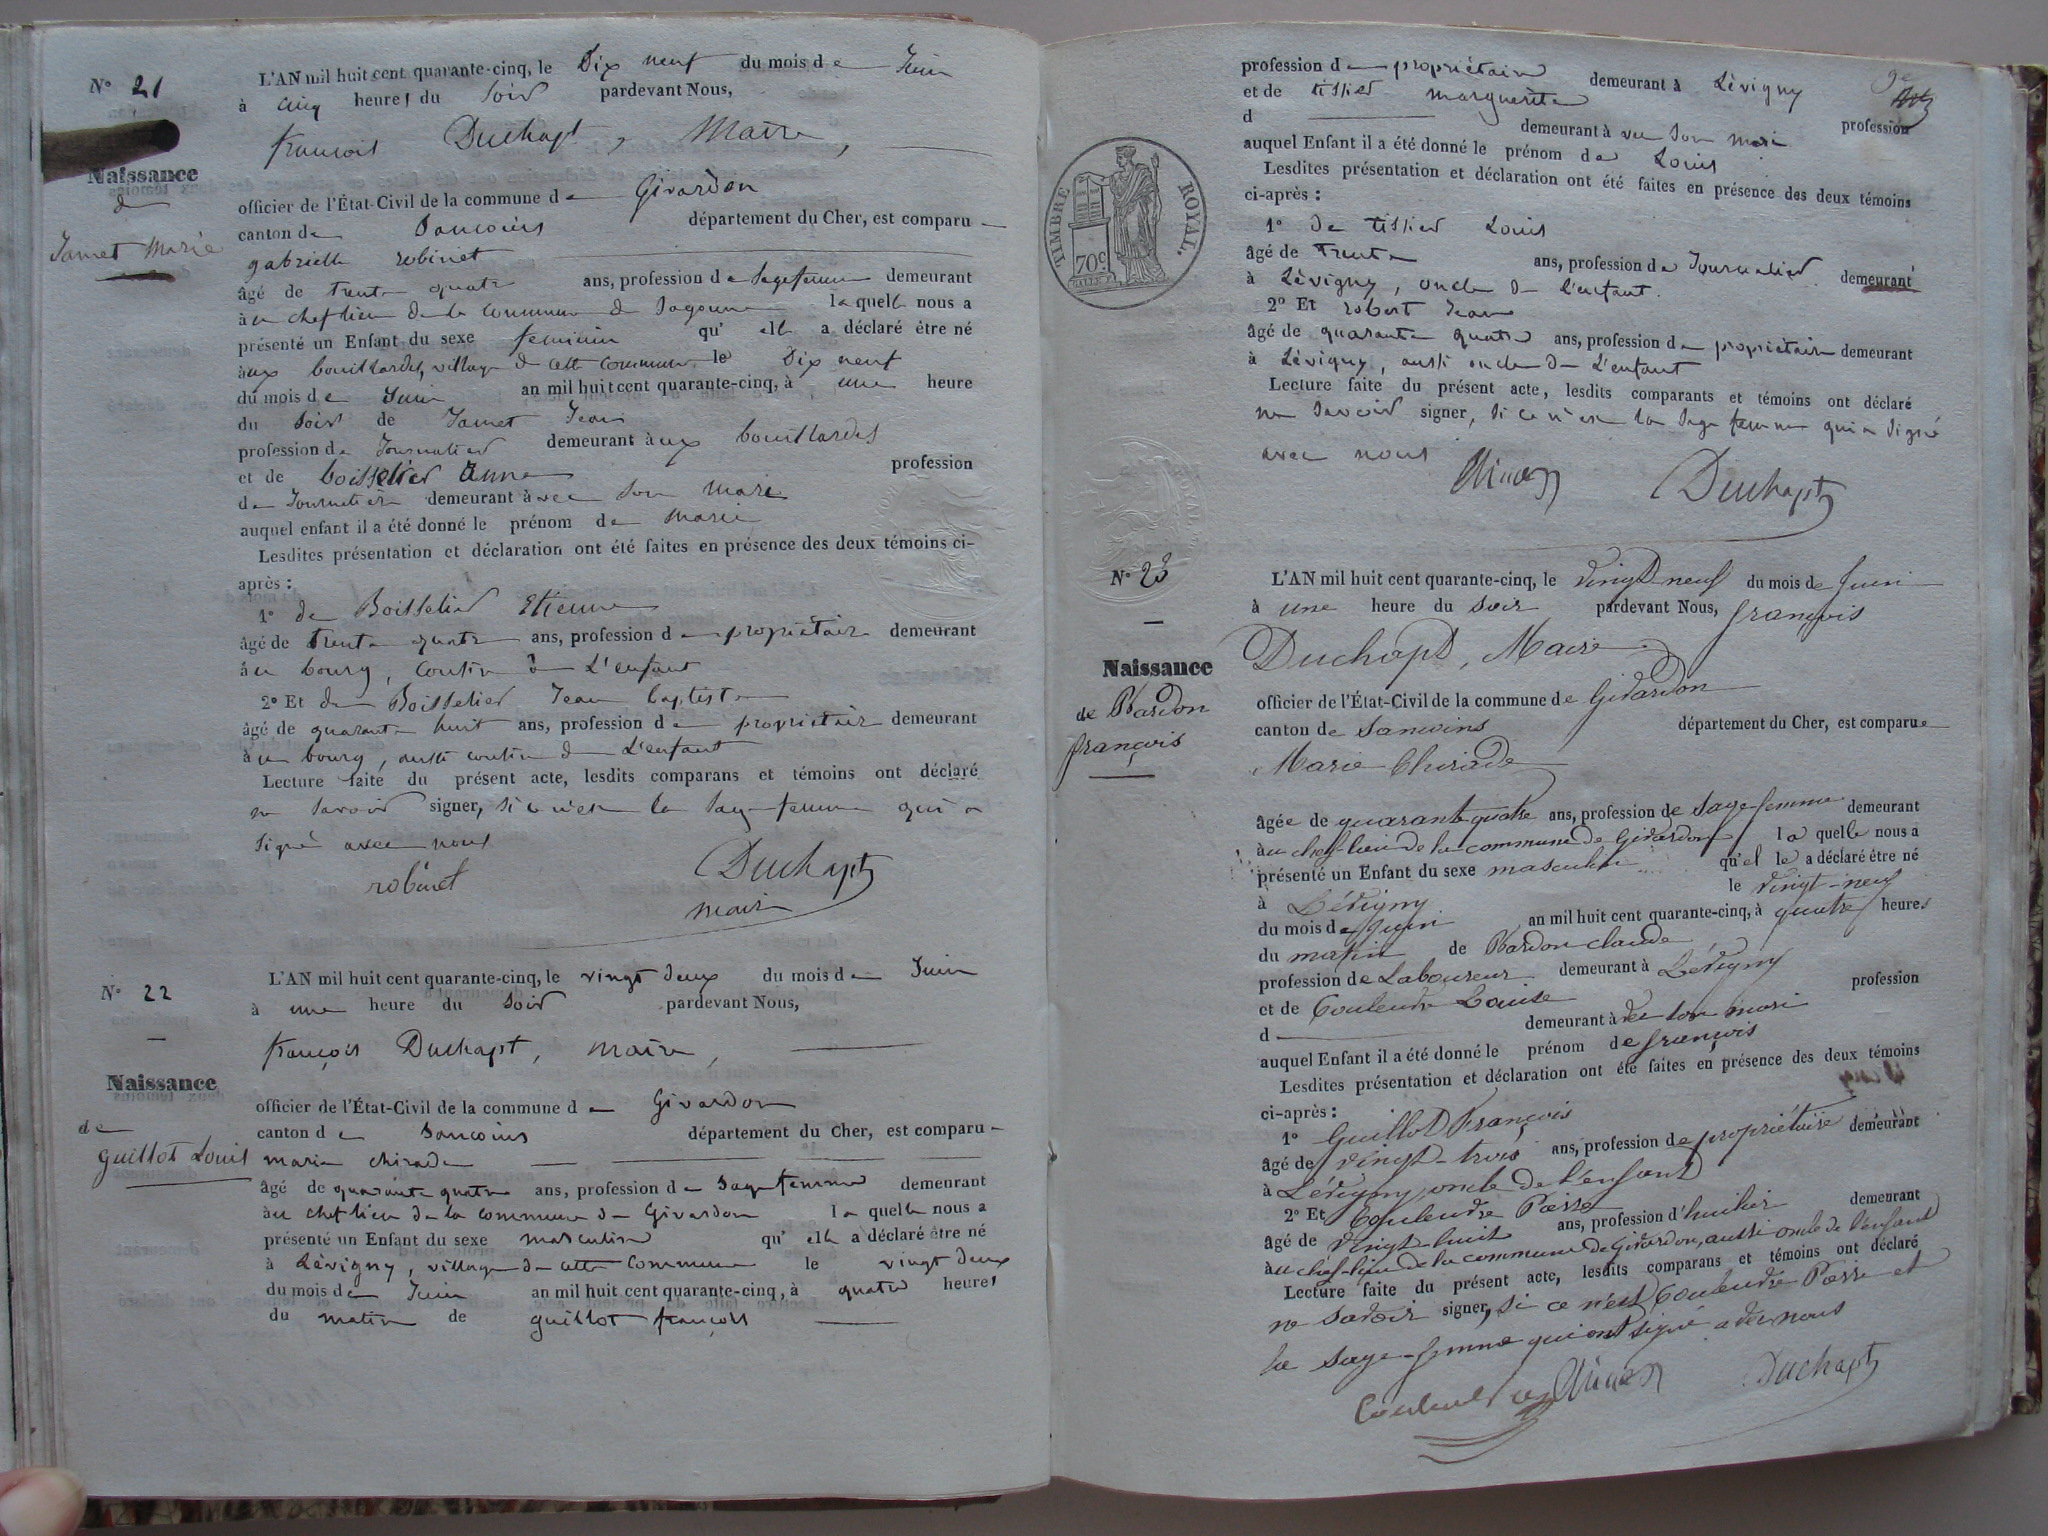 N° 21
Naissance
de
Jamet Marie
L'AN mil huit cent quarante-cinq, le Dix neuf du mois de Juin
à cinq heures du Soir pardevant Nous,
françois Duchapt, Maire,
officier de l'État-Civil de la commune de Givardon
canton de Sancoins département du Cher, est comparu
gabrielle robinet
âgé de trente quatre ans, profession de Sagefemme demeurant
à u chef lieu de la commune de Sagonne laquelle nous a
présenté un Enfant du sexe feminin qu'elle a déclaré être né
àux bouillardes, village de cette commune le Dix neuf
du mois de Juin an mil huit cent quarante-cinq, à une heure
du Soir de Jamet Jean
profession de Journalier demeurant àux bouillardes
et de boisselier Anne profession
de Journalière demeurant àvec Son Mari
auquel enfant il a été donné le prénom de Marie
Lesdites présentation et déclaration ont été faites en présence des deux témoins ci-
après :
1° de Boisselier Etienne
âgé de Trente quatre ans, profession de propriétaire demeurant
àu bourg, cousin de L'enfant
2° Et de Boisselier Jean baptiste
âgé de quarante huit ans, profession de propriétaire demeurant
àu bourg, aussi cousin de L'enfant
Lecture faite du présent acte, lesdits comparans et témoins ont déclaré
ne Savoir signer, si ce n'est la Sage femme qui a
Signé avec nous
robinet Duchapt
maire
N° 22
Naissance
de
Guillot Louis
L'AN mil huit cent quarante-cinq, le vingt deux du mois de Juin
à une heure du Soir pardevant Nous,
françois Duchapt, Maire,
officier de l'État-Civil de la commune de Givardon
canton de Sancoins département du Cher, est comparu
marie chirade
âgé de quarante quatre ans, profession de Sage femme demeurant
àu chef lieu de la commune de Givardon laquelle nous a
présenté un Enfant du sexe masculin qu'elle a déclaré être né
à Lévigny, village de cette commune le vingt deux
du mois de Juin an mil huit cent quarante-cinq, à quatre heures
du matin de guillot françois
profession de propriétaire demeurant à Lévigny
et de tissier marguerite profession
d demeurant àvec Son Mari
auquel Enfant il a été donné le prénom de Louis
Lesdites présentation et déclaration ont été faites en présence des deux témoins
ci-après :
1° de tissier Louis
âgé de Trente ans, profession de Journalier demeurant
à Lévigny, oncle de l'enfant.
2° Et robert Jean
âgé de quarante quatre ans, profession de propriétaire demeurant
à Lévigny, aussi oncle de L'enfant
Lecture faite du présent acte, lesdits comparants et témoins ont déclaré
ne Savoir signer, si ce n'est la Sage femme qui a Signé
avec nous
Duchapt
TIMBRE ROYAL.
70c
N° 23
Naissance
de Bardon
françois
L'AN mil huit cent quarante-cinq, le vingt neuf du mois de Juin
à une heure du soir pardevant Nous, françois
Duchapt, Maire
officier de l'État-Civil de la commune de Givardon
canton de Sancoins département du Cher, est comparue
Marie Chirade
âgée de quarante quatre ans, profession de Sage femme demeurant
àu chef-lieu de la commune de Givardon laquelle nous a
présenté un Enfant du sexe masculin qu'elle a déclaré être né
à Lévigny le vingt-neuf
du mois de Juin an mil huit cent quarante-cinq, à quatre heures
du matin de Bardon claude
profession de Laboureur demeurant à Lévigny
et de Couleudre Louise profession
d demeurant àvec son mari
auquel Enfant il a été donné le prénom de françois
Lesdites présentation et déclaration ont été faites en présence des deux témoins
ci-après :
1° Guillot François
âgé de vingt-trois ans, profession de propriétaire demeurant
à Lévigny, oncle de l'enfant
2° Et Couleudre Pierre
âgé de vingt huit ans, profession d'huilier demeurant
àu chef-lieu de la commune de Givardon, aussi oncle de l'enfant
Lecture faite du présent acte, lesdits comparans et témoins ont déclaré
ne savoir signer, si ce n'est Couleudre Pierre et
la sage-femme qui ont signé avec nous
Duchapt